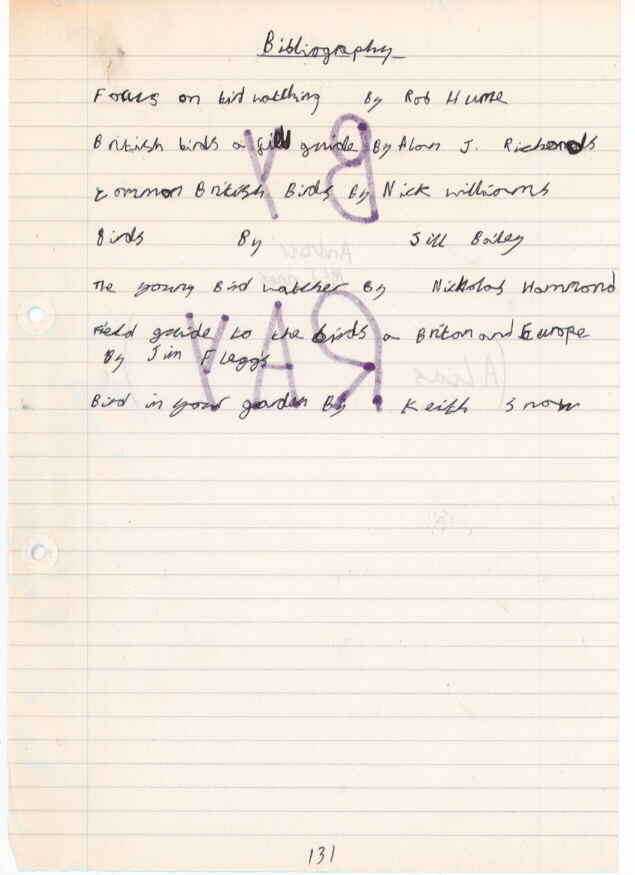 Bibliography
Focus on bird watching By Rob Hume
British birds a guide By Alan J. Richards
Common British Birds By Nick williams
Birds By Jill Bailey
The young Bird watcher By Nickolas Hammond
Field guide to the birds on Briton and Europe
By Jim Flaggs
Bird in your garden By Keith Snow
BY
RAY
Andrew
(Alias
131